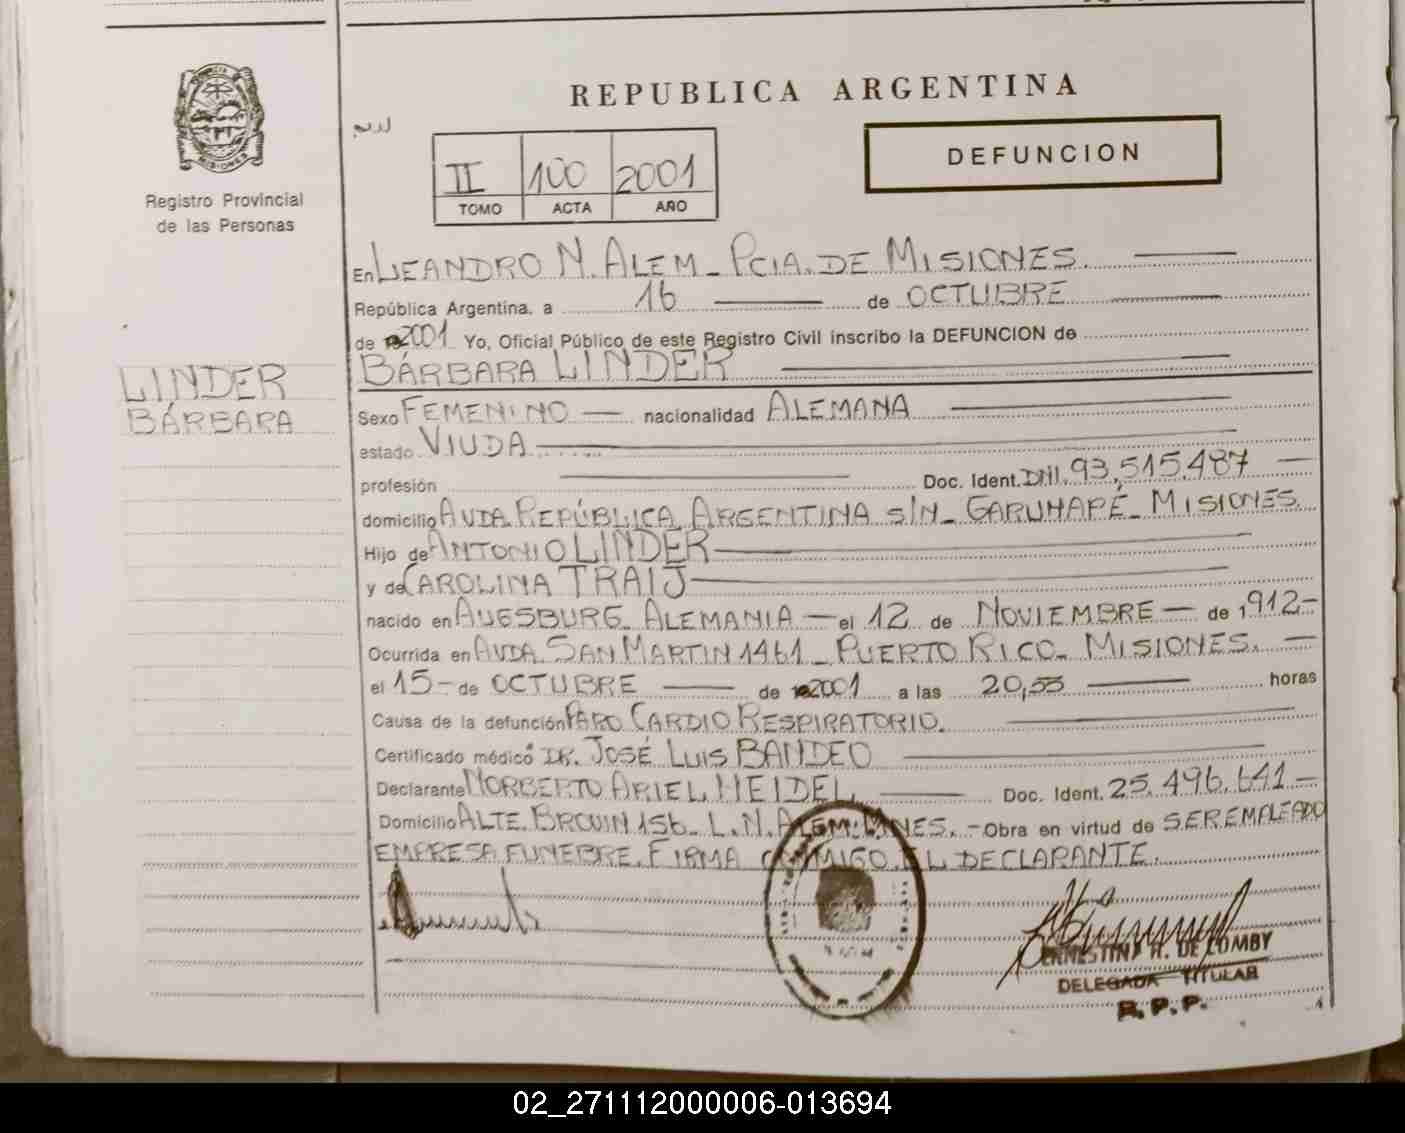 REPUBLICA ARGENTINA
DEFUNCION
II 100 2001
TOMO ACTA AÑO
MISIONES
Registro Provincial
de las Personas
LINDER
BÁRBARA
En LEANDRO N. ALEM - PCIA. DE MISIONES.
República Argentina, a 16 de OCTUBRE
de 2001 Yo, Oficial Público de este Registro Civil inscribo la DEFUNCION de
BÁRBARA LINDER
Sexo FEMENINO nacionalidad ALEMANA
estado VIUDA
profesión Doc. Ident. DNI. 93,515,487
domicilio AVDA. REPÚBLICA ARGENTINA S/N - GARUHAPÉ - MISIONES.
Hijo de ANTONIO LINDER
y de CAROLINA TRAIJ
nacido en AUESBURG ALEMANIA - el 12 de NOVIEMBRE - de 1912-
Ocurrida en AVDA. SAN MARTIN 1461 - PUERTO RICO - MISIONES.
el 15 - de OCTUBRE de 2001 a las 20,55 horas
Causa de la defunción PARO CARDIO RESPIRATORIO.
Certificado médico DR. JOSÉ LUIS BANDEO
Declarante NORBERTO ARIEL HEIDEL Doc. Ident. 25.496.641 -
Domicilio ALTE. BROWN 156 - L.N. ALEM. MNES. - Obra en virtud de SER EMPLEADO
EMPRESA FUNEBRE. FIRMA CONMIGO EL DECLARANTE.
H. DE LOMBY
DELEGADA TITULAR
R.P.P.
02_271112000006-013694